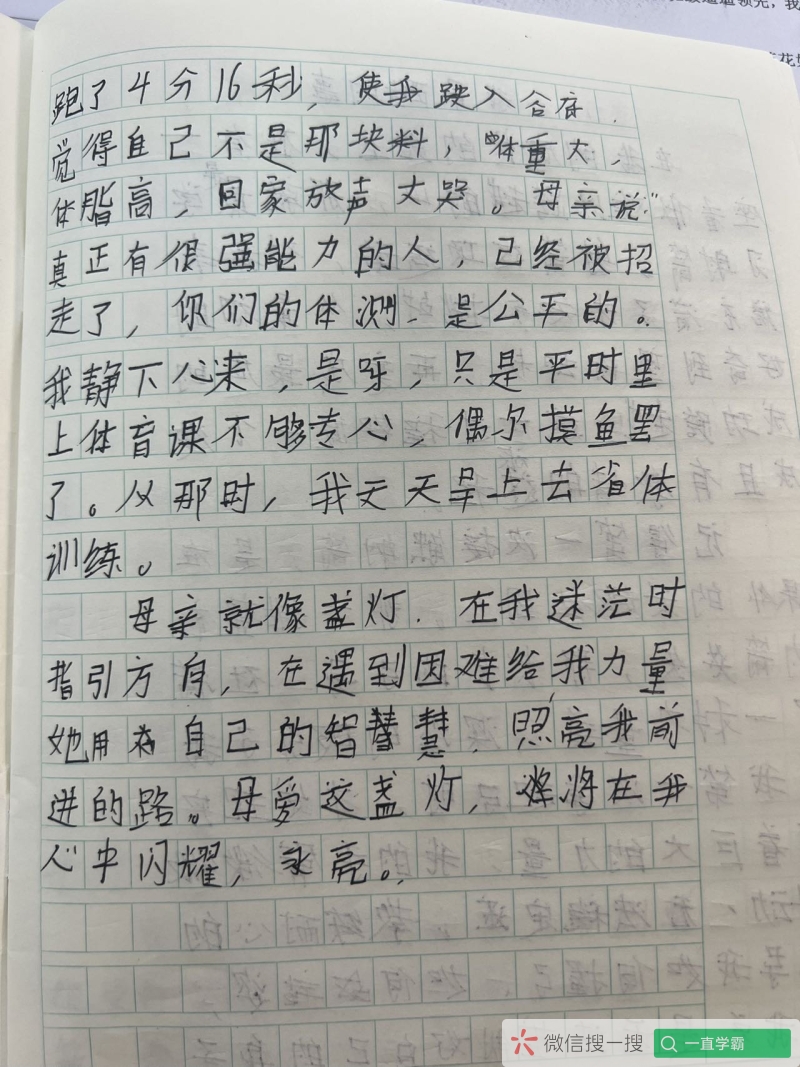 跑了4分16秒，使我跌入谷底．
觉得自己不是那块料，体重大，
体脂高，回家放声大哭。母亲说“
真正有很强能力的人，已经被招
走了，你们的体测、是公平的。
我静下心来，是呀，只是平时里
上体育课不够专心，偶尔摸鱼罢
了。从那时，我天天早上去省体
训练。
母亲就像盏灯．在我迷茫时
指引方向，在遇到困难给我力量
她用为自己的智慧．照亮我前
进的路。母爱这盏灯，将在我
心中闪耀，永亮。
微信搜一搜
一直学霸